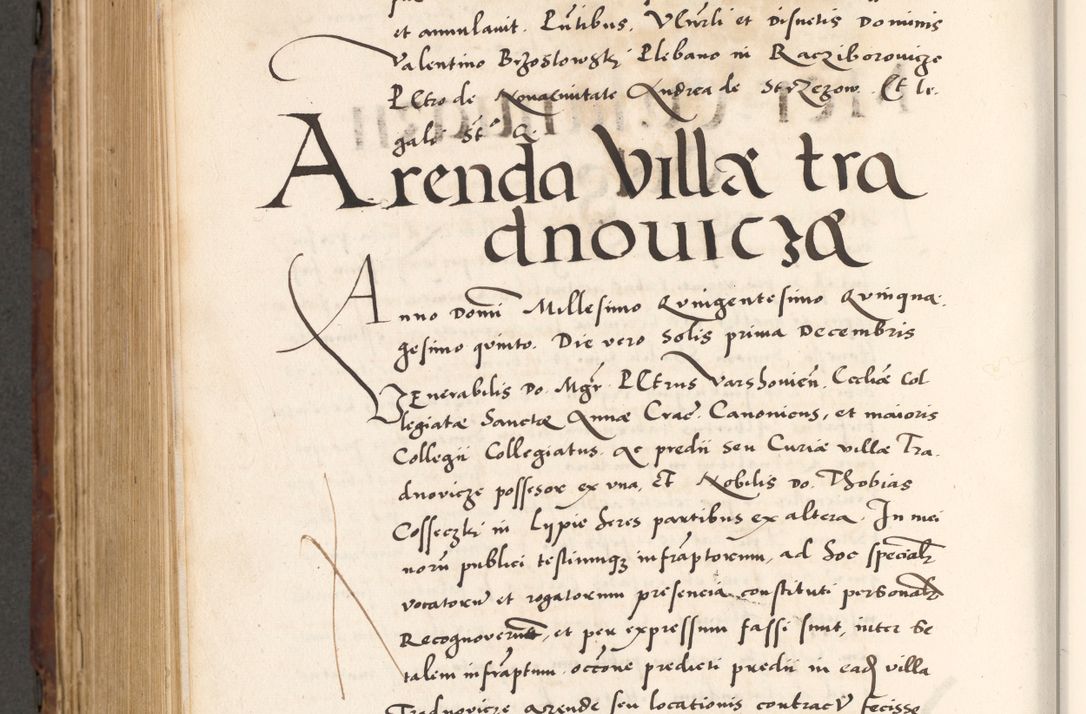 et annulavit. Pntibus, Vlnrli et Disnetis Dominis
Valentino Brzoslowski Plebano in Racziborovicze
Petro de Novacivitate Andrea de Strzezow. Et le.
gali St.º
Arenda Villæ tra
dnouiczæ
Anno Domi Millesimo Quingentesimo Quinqua.
gesimo quinto. Die vero Solis prima Decembris
Venerabilis Do. Mgr. Petrus Varshovien. Eccliæ Col
legiatæ Sanctæ Annæ Crac. Canonicus, et maioris
Collegii Collegiatus. Ac predii seu Curiæ villæ Tra.
dnovicze possesor ex una, Et Nobilis Do. Thobias
Cosseczki in Lypie heres partibus ex altera. In mei
noru publici testiumq infraptorum, ad hoc specialr
vocatoru et rogatorum presencia constituti personalr
Recognoverunt, et per expressum fassi sunt, inter se
talem infraptum occone predicti predii in ead villa
Tradnovicze arende seu locationis contractu fecisse